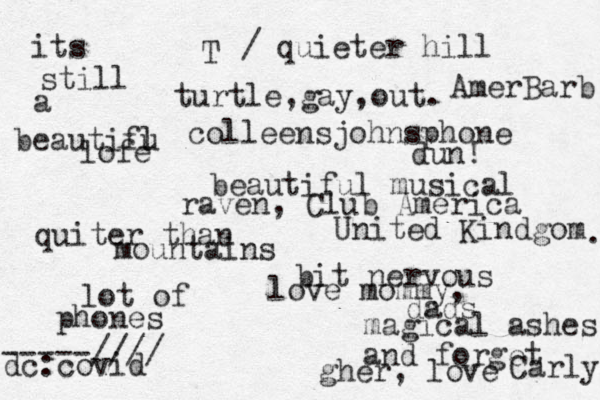 its
T / quieter hill
still
a
turtle,gay,out.
AmerBarb
beautiflu
lofe
colleensjohnsphone
dun!
beautiful musical
raven, Club America
quiter than
mountains
United Kindgom.
bit nervous
love mommy,
lot of
phones
dads
magical ashes
_____////
dc:covid
and forget
gher, love Carly